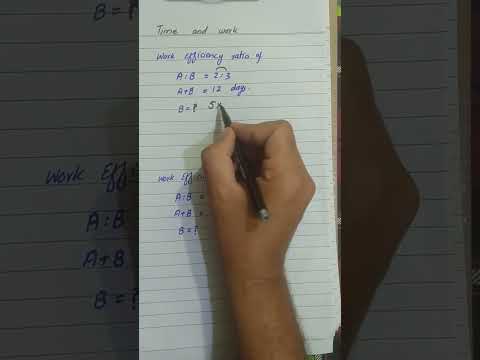 Time and work
Work Efficiency ratio of
A:B = 2:3
A+B = 12 days.
B = ? 5
Work Eff
A:B =
A+B =
B = ?